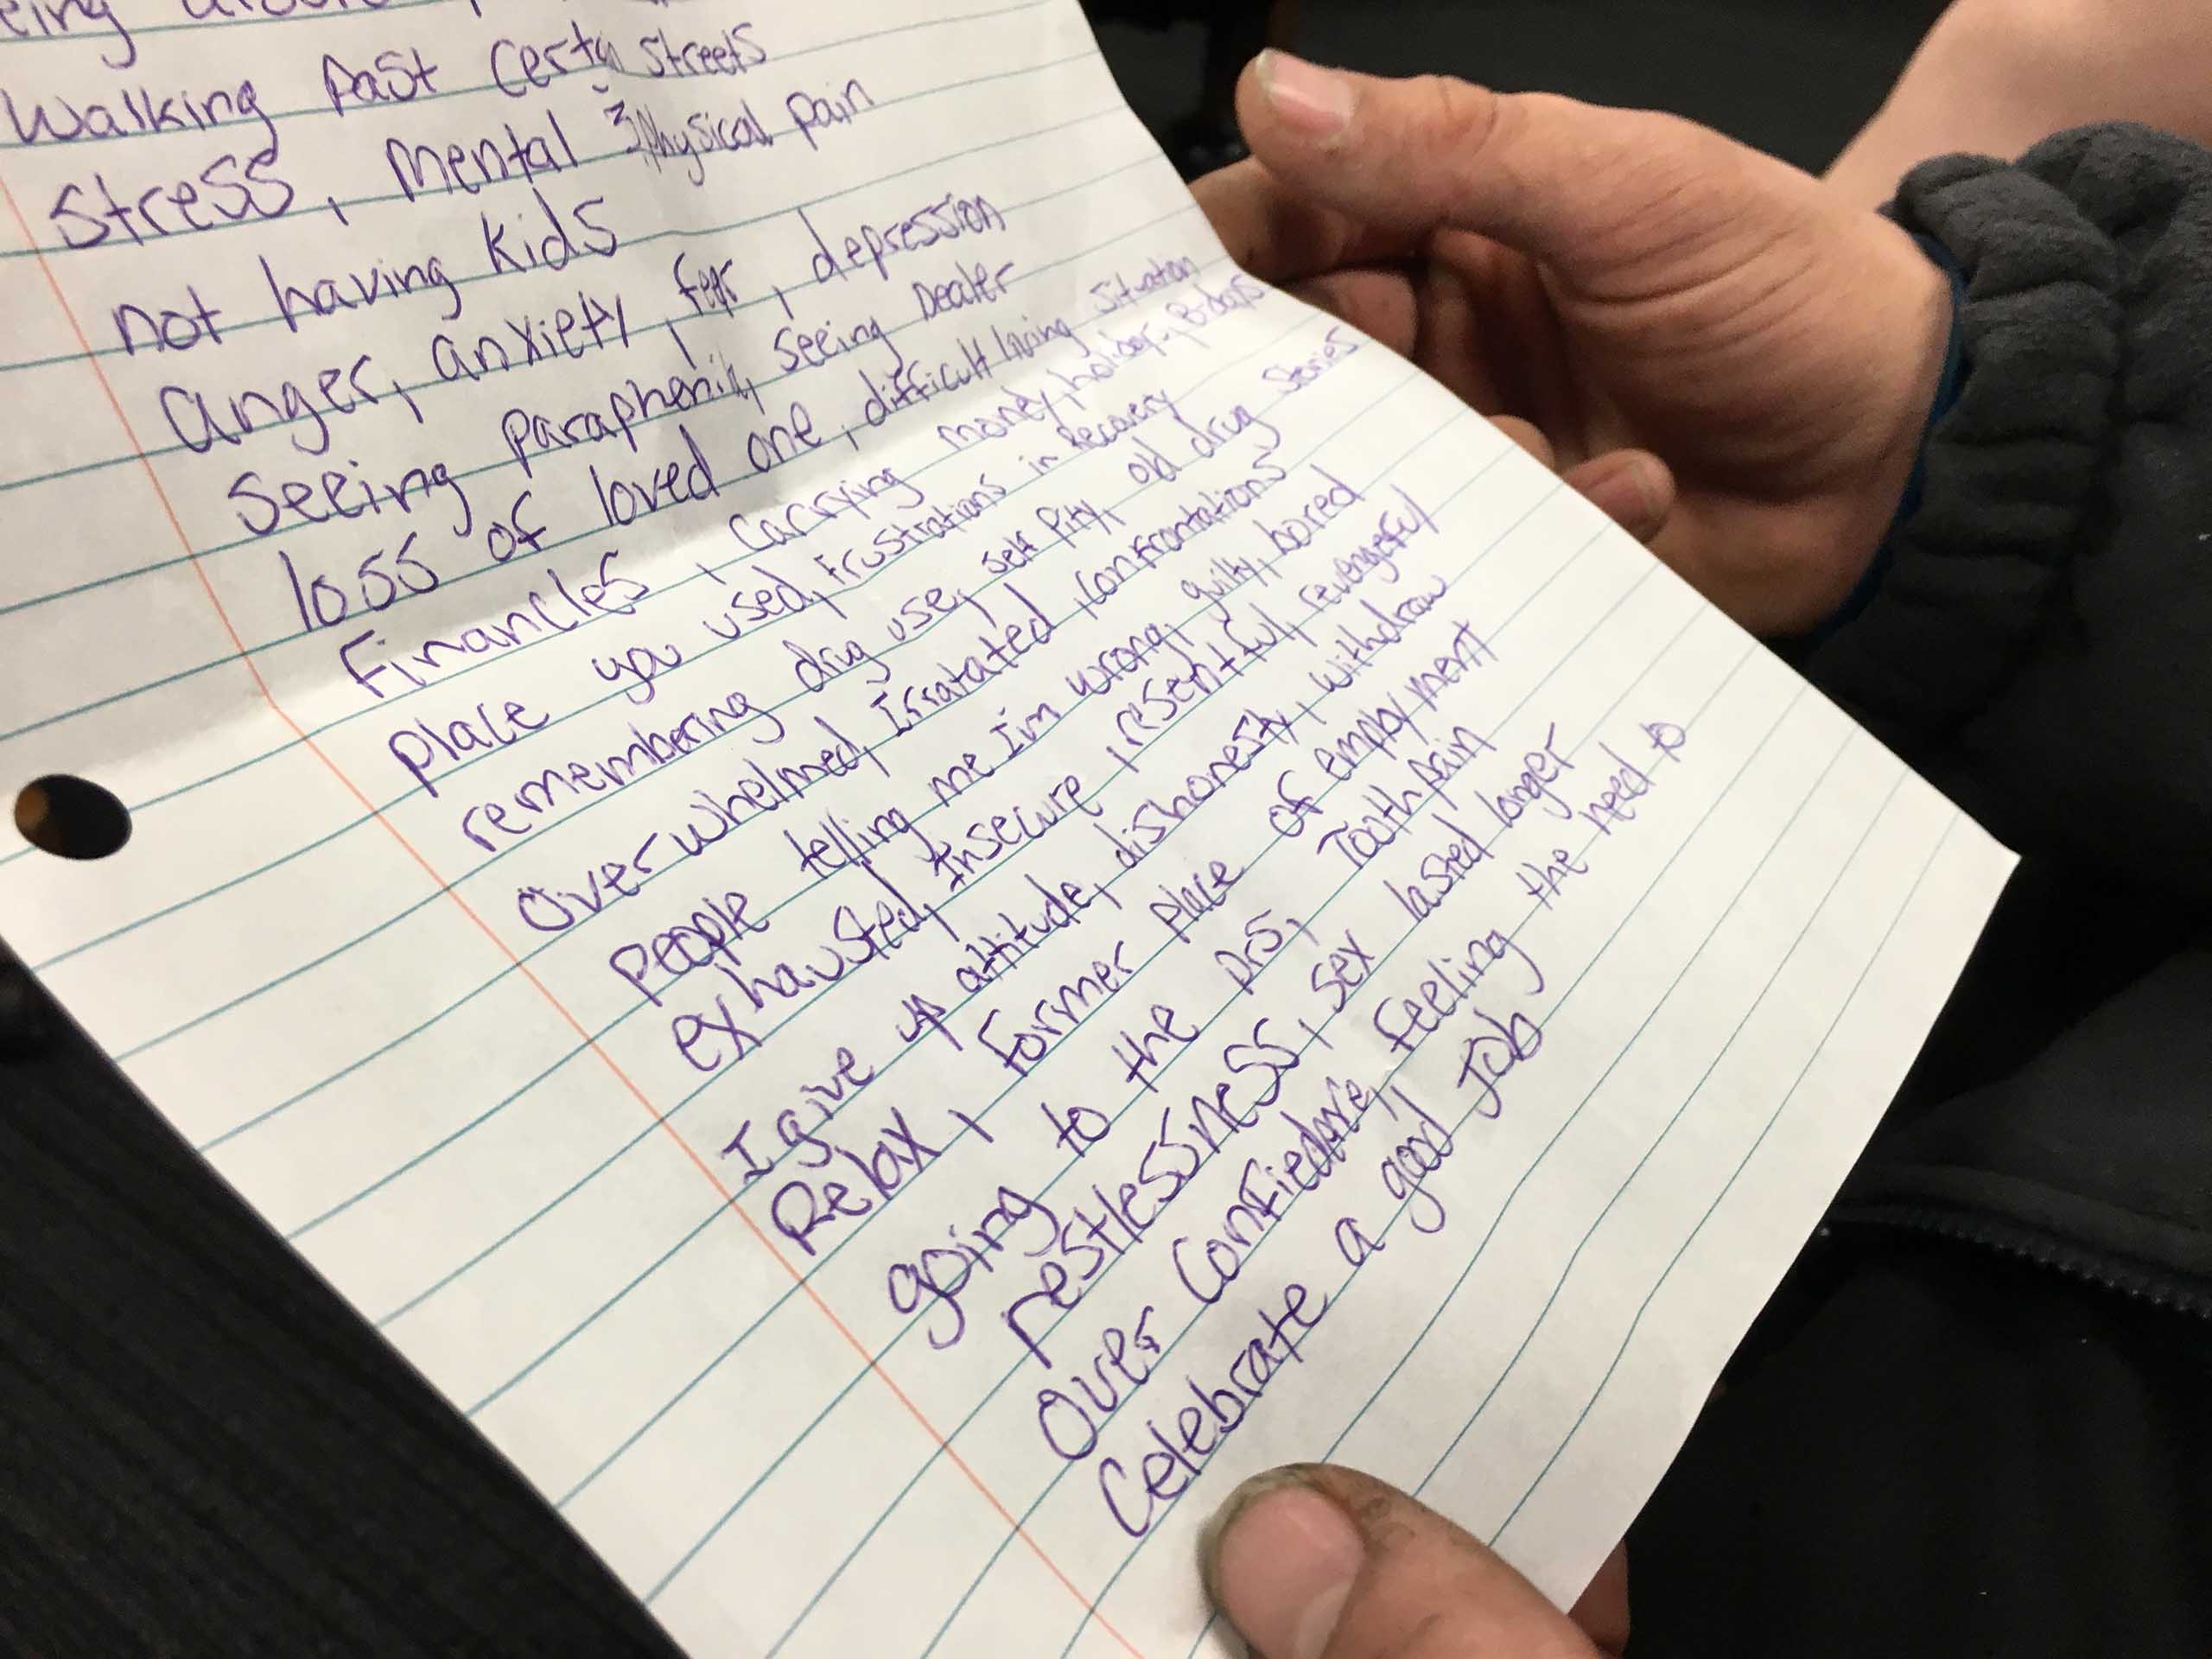 Walking past certain streets
Stress, mental & physical pain
not having kids
anger, anxiety, fear, depression
seeing paraphenila, seeing Dealer
loss of loved one, difficult living situation
Financles, carrying money, holidays, B-days
place you used, frustrations in Recovery
remembering drug use, self pity, old drug stories
overwhelmed, Irratated, confrontations
people telling me I'm wrong, guilty, bored
exhausted, Insecure, resentful, revengeful
I give up attitude, dishonesty, withdraw
Relax, Former place of employment
going to the Drs, Tooth pain
restlessness, sex lasted longer
over confiedance, feeling the need to
Celebrate a good Job